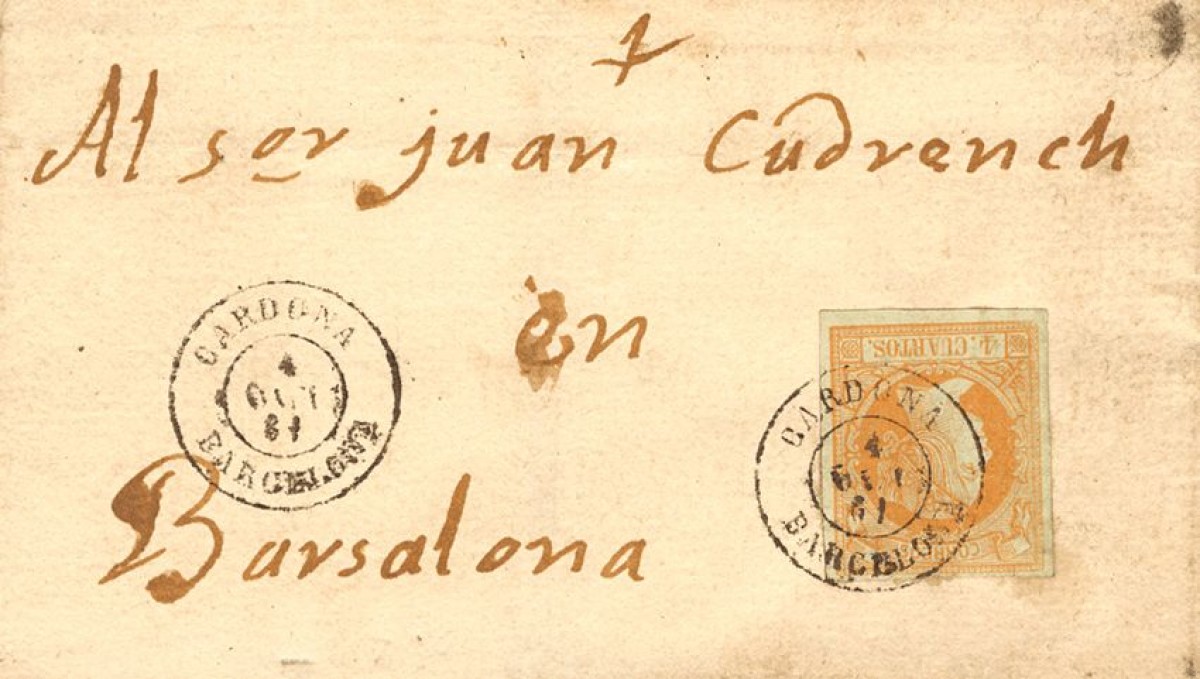 Al sor juan Cudrench
en
Barsalona
CARDONA
4
OCT
61
BARCELONA
4 CUARTOS.
CARDONA
4
OCT
61
BARCELONA